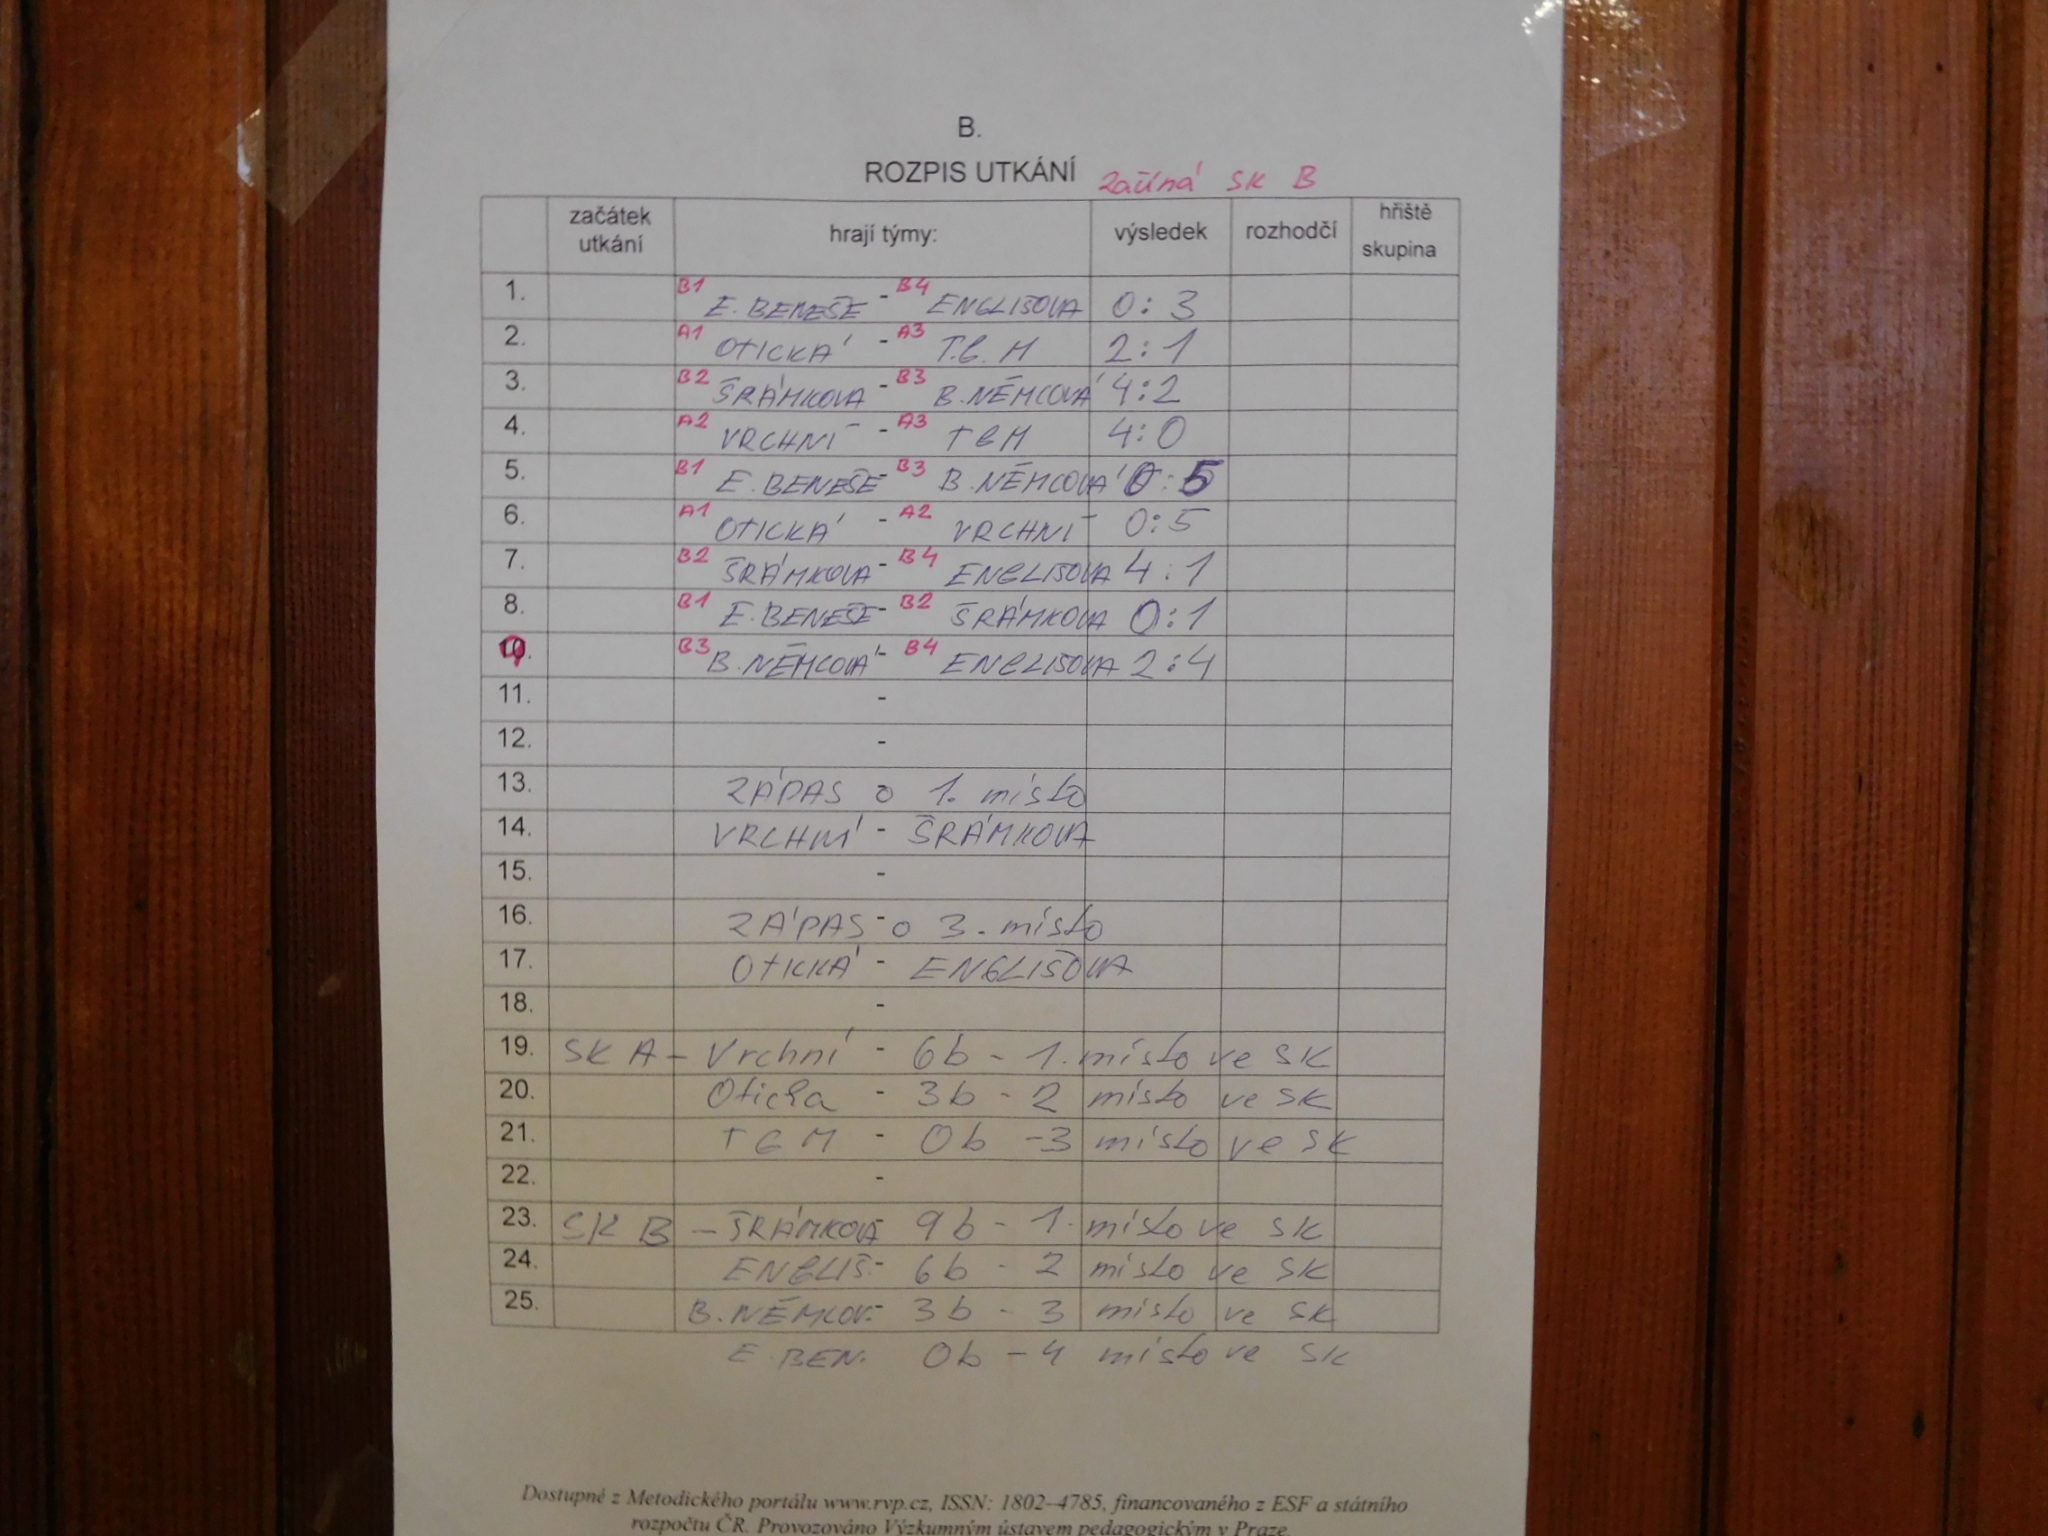 B.
ROZPIS UTKÁNÍ začíná SK B
začátek utkání hrají týmy: výsledek rozhodčí hřiště skupina
1. B1 E. BENEŠE - B4 ENGLIŠOVA 0:3
2. A1 OTICKÁ - A3 T.G.M 2:1
3. B2 ŠRÁMKOVA - B3 B.NĚMCOVÁ 4:2
4. A2 VRCHNÍ - A3 TGM 4:0
5. B1 E. BENEŠE - B3 B.NĚMCOVÁ 0:5
6. A1 OTICKÁ - A2 VRCHNÍ 0:5
7. B2 ŠRÁMKOVA - B4 ENGLIŠOVA 4:1
8. B1 E. BENEŠE - B2 ŠRÁMKOVA 0:1
9. B3 B.NĚMCOVÁ - B4 ENGLIŠOVA 2:4
11. -
12. -
13. ZÁPAS o 1. místo
14. VRCHNÍ - ŠRÁMKOVA
15. -
16. ZÁPAS - o 3. místo
17. OTICKÁ - ENGLIŠOVA
18. -
19. SK A - Vrchní - 6b - 1. místo ve SK
20. Oticka - 3b - 2 místo ve SK
21. TGM - 0b - 3 místo ve SK
22. -
23. SK B - ŠRÁMKOVA - 9b - 1. místo ve SK
24. ENGLIŠ. - 6b - 2 místo ve SK
25. B.NĚMCOV. - 3b - 3 místo ve SK
E. BEN. 0b - 4 místo ve SK
Dostupné z Metodického portálu www.rvp.cz, ISSN: 1802–4785, financovaného z ESF a státního
rozpočtu ČR. Provozováno Výzkumným ústavem pedagogickým v Praze.